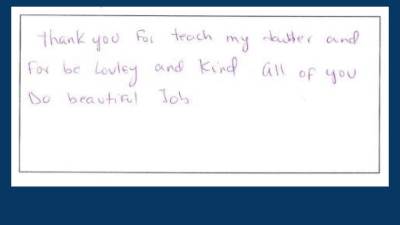 thank you For teach my dauter and
For be Lovley and Kind All of you
Do beautiful Job